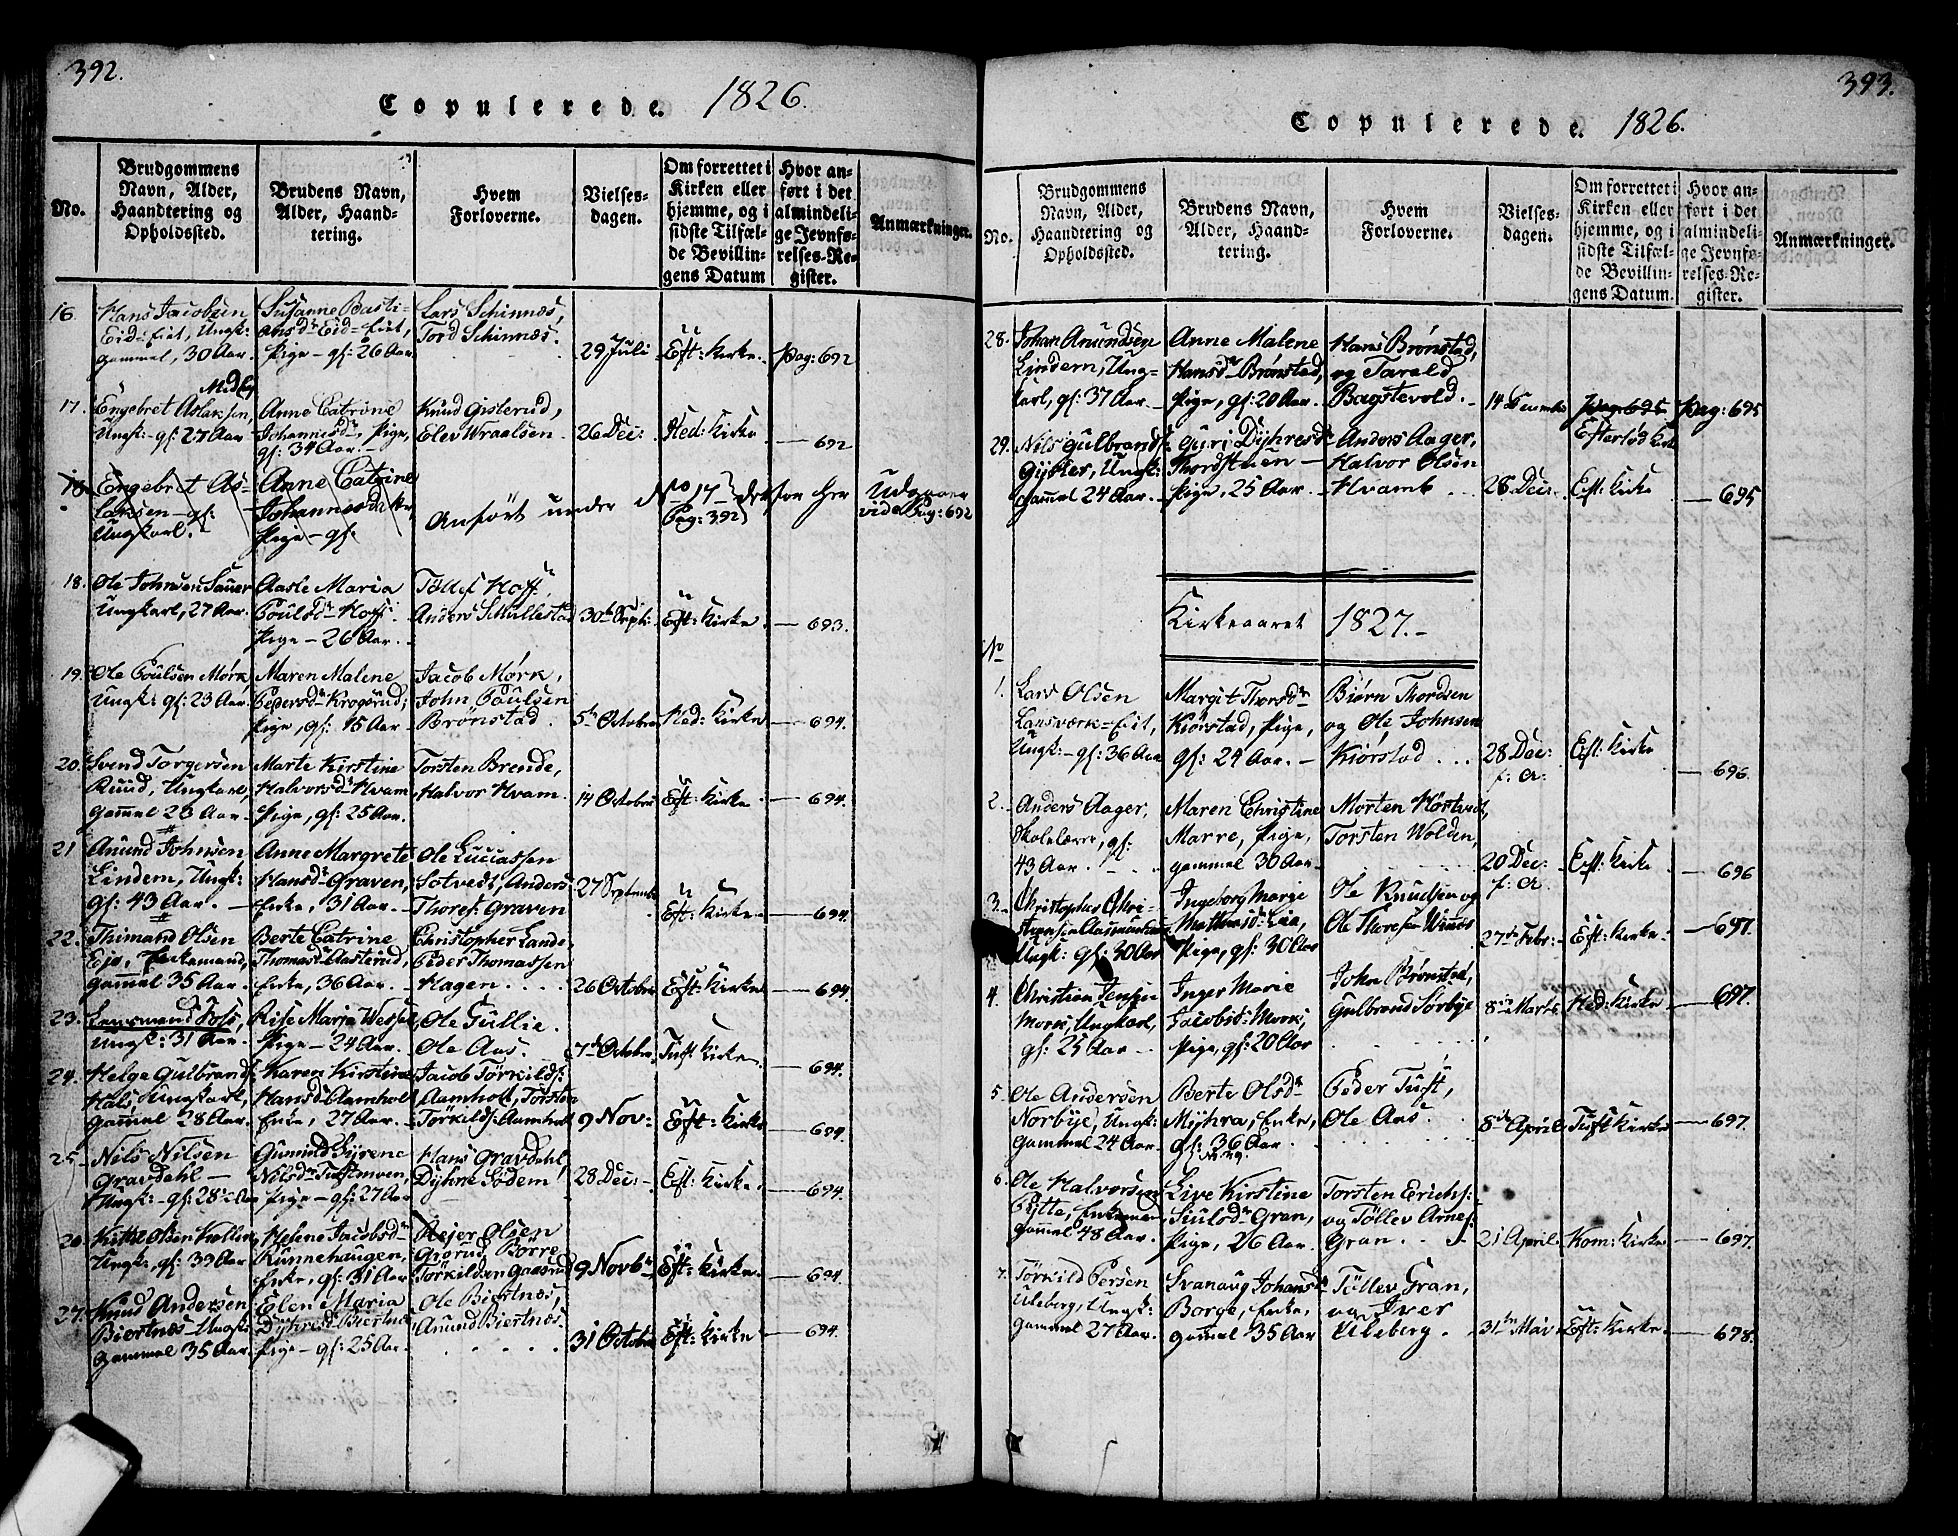 392.
Copulerede. 1826.
No.
Brudgommens Navn, Alder, Haandtering og Opholdssted.
Brudens Navn, Alder, Haandtering.
Hvem Forloverne.
Vielsesdagen.
Om forrettet i Kirken eller hjemme, og i sidste Tilfælde Bevillingens Datum
Hvor anført i det almindelige Jevnførelses-Register.
Anmærkninger.
16 Hans Jacobsen Susanne Basti- Lars Schinnæs,
Eid-Eiet, Ungk: ansdr Eid-Eiet, Tord Schinnæs.
gammel, 30 Aar. Pige - gl: 26 Aar 29 Juli Eft: Kirke. Pag: 692
17. Engebret Aslaksen, Anne Catrine Knud Gisterud,
Ungk:- gl: 27 Aar Johannesdr, Pige, Elev Wraalsen. 26 Dec: Hed: Kirke — 692
gl: 34 Aar. -
18. Engebret As- Anne Catrine
laksen - gl: Johannesda Anført under No 17 derfor her Udgaaer
Ungkarl. Pige - gl: Pag: 392 vide Pag: 692
18. Ole Johnsen Sauer Aasle Maria Tollef Hoff,
Ungkarl, 27 Aar. Poulsdr Hoff. Anders Schullestad 30te Sept: Eft: Kirke. — 693.
Pige - 26 Aar.
19. Ole Poulsen Mørk, Maren Malene Jacob Mørk,
Ungk: gl: 23 Aar. Pedersdr Krogsrud, John Poulsen
Pige, gl: 45 Aar Brønstad. 5te October Hed: Kirke — 694.
20. Svend Torgersen Marte Kirstine Torsten Brende,
Ruud, Ungkarl, Halvorsdr Hvam Halvor Hvam. 14 October Eft: Kirke. — 694.
gammel 28 Aar. Pige, gl: 25 Aar.
21 Anund Johnsen Anne Margrete Ole Luciassen
Lindem, Ungk: Hansdr Graven, Sotvedt, Anders 27 September
gl: 43 Aar. - Enke, 31 Aar. - Thores: Graven Eft: Kirke — 694.
22. Thimand Olsen Berte Catrine Christopher Lande
Eje, Enkemand, Thomasdr Aasterud, Peder Thomassen
gammel 35 Aar. Enke, 36 Aar. Hagen . . . . 26 October Eft: Kirke — 694.
23. Lensmand Foss, Rise Marja Wessel, Ole Tullie.
Ungk: 31 Aar. Pige - 24 Aar. Ole Aas. 7de Octobr. Tuft Kirke. — 694.
24. Helge Gulbrands: Karen Kirstine Jacob Törkilds:
Hals, Ungkarl, Hansdr Aamholt Aamholt, Torsten
gammel 28 Aar. Enke, 27 Aar. Törkilds: Aamholt 9 Nov: Eft: Kirke — 694.
25. Nils Nilsen Gunnild Syrene Hans Gravdahl,
Gravdahl - Nilsdr Tuftmoen, Dyhre Sodem 28 Dec: - Eft: Kirke. — 694.
Ungk: - gl: 28 Aar Pige - gl: 27 Aar
26. Kittil Olsen Kollen, Helene Jacobsdr Rejer Olsen
Ungk:, gl: 39 Aar. Runnehaugen, Grorud, Børre
Enke, gl: 31 Aar Törkildsen Gaasrud 9 Novbr Eft: Kirke. — 694.
27. Knud Andersen Elen Maria Ole Biertnæs,
Biertnæs - Ungk: Dyhresdr Biertnæs Anund Biertnæs.
gammel 35 Aar. Pige - gl: 25 Aar. 31 October Eft: Kirke — 694.
393.
Copulerede. 1826.
No.
Brudgommens Navn, Alder, Haandtering og Opholdssted.
Brudens Navn, Alder, Haandtering.
Hvem Forloverne.
Vielsesdagen.
Om forrettet i Kirken eller hjemme, og i sidste Tilfælde Bevillingens Datum.
Hvor anført i det almindelige Jevnførelses-Register.
Anmærkninger.
28. Johan Amundsen Anne Malene Hans Brønstad,
Lindern, Ung- Hansdr Brønstad, og Tarald
karl, gl: 37 Aar. Pige, gl: 20 Aar. Bagstevold. - 14 December Pag: 695 Pag: 695
Efterløds Kirke
29. Nils Gulbrands: Guri Dyhresdr Anders Aager,
Gysler, Ungk: Thordstuen - Halvor Olsen
gammel 24 Aar. Pige, 25 Aar. - Hvamb . . 28 Dec: Eft: Kirke — 695
Kirkeaaret 1827. -
No
1. Lars Olsen Margit Thorsdr Biørn Thordsen
Lansværk-Eiet, Kiørstad, Pige, og Ole Johnsen
Ungk: - gl: 36 Aar gl: 29 Aar. - Kiörstad . . . 28 Dec: Eft: Kirke
f: A: — 696.
2. Anders Aager, Maren Christine Morten Hørtvedt,
Skolelærer, gl: Marre, Pige, Torsten Wolden,
43 Aar. gammel 30 Aar. 20 Dec: Eft: Kirke — 696
f: A.
3. Christopher Chri- Ingeborg Marie Ole Knudsen og
Mathiasdr Lia, Ole Thoresen
Ungk: gl: 30 Aar Pige, gl: 30 Aar 27de Febr: Eft: Kirke. — 697.
4. Christian Jensen Inger Marie John Brønstad,
Mork, Ungkarl, Jacobsd: Mork, Gulbrand Sørbye 8de Marts Hed: Kirke — 697.
gl: 25 Aar Pige, gl: 20 Aar
5. Ole Andersen Berte Olsdr Peder Tuft,
Norbye, Ungk: Myhra, Enke, Ole Aas.
gammel 24 Aar. gl: 36 Aar. 8de April Tuft Kirke — 697.
6. Ole Halvorsen Live Kirstine Torsten Erichs:
Pytte, Enkeman Siulsdr Gran, og Tøllev Arnes:
gammel 48 Aar. Pige, 26 Aar. Gran. . 21 April. Kom: Kirke — 697.
7. Törkild Persen Svanaug Johansdr Töllev Gran,
Uleberg, Ungk: Borge, Enke, og Iver
gammel 27 Aar. gammel 35 Aar Uleberg. 31te Mai Eft: Kirke. — 698.